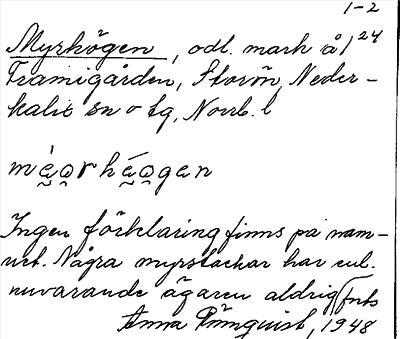 1-2
Myrhögen, odl. mark å 1²⁴
Framigården, Storön, Neder-
kalix sn o tg, Norrb. l
Ingen förklaring finns på nam-
net. Några myrstackar har enl.
nuvarande ägaren aldrig
Anna Rönnquist, 1948